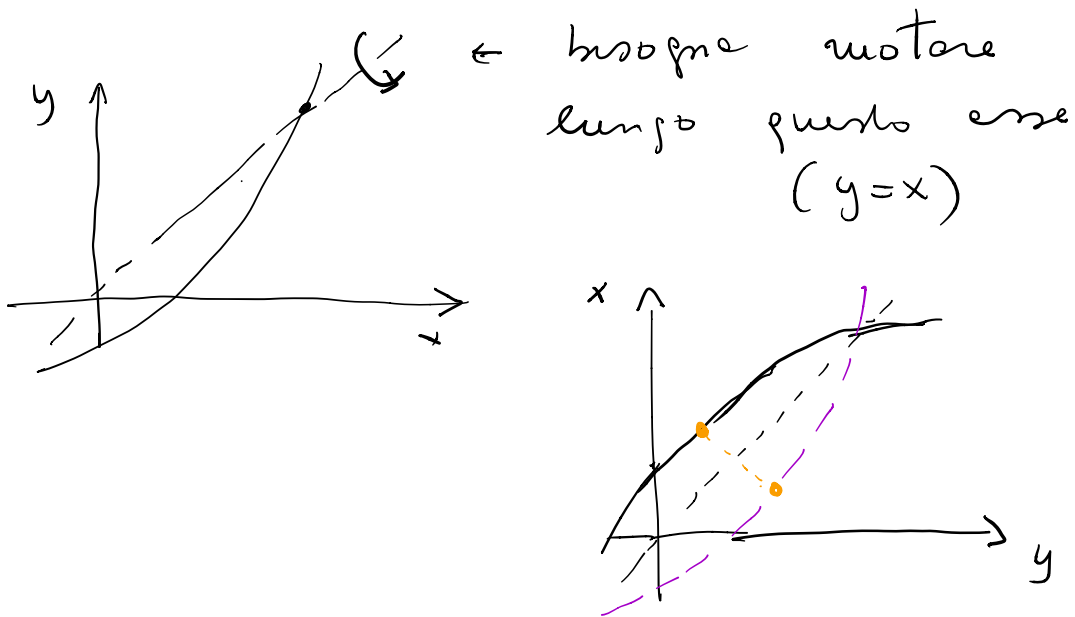 y
← bisogna ruotare
lungo questo asse
(y=x)
x
x
y